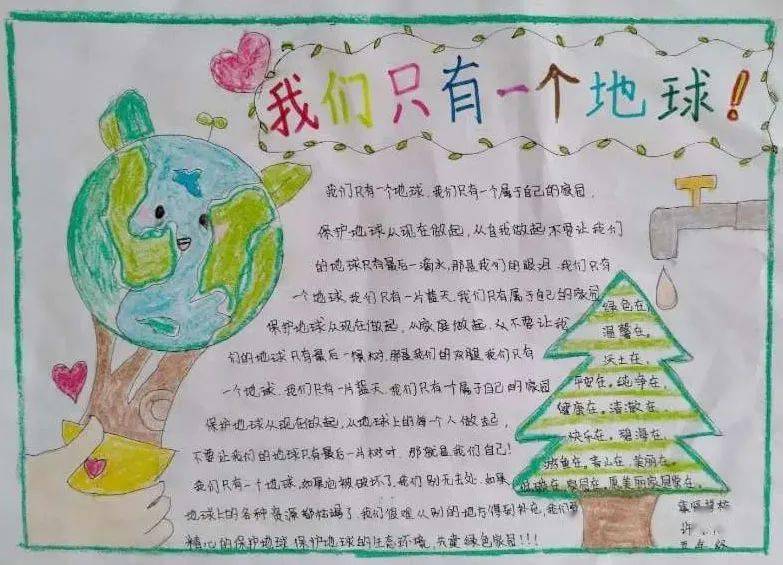 我们只有一个地球！
我们只有一个地球，我们只有一个属于自己的家园，
保护地球从现在做起，从自我做起不要让我们
的地球只有最后一滴水，那是我们的眼泪，我们只有
一个地球，我们只有一片蓝天，我们只有属于自己的家园
保护地球从现在做起，从家庭做起，从不要让我
们的地球只有最后一棵树，那是我们的双腿，我们只有
一个地球，我们只有一片蓝天，我们只有个属于自己的家园
保护地球从现在做起，从地球上的每个人做起，
不要让我们的地球只有最后一片树叶，那就是我们自己！
我们只有一个地球，如果它被破坏了，我们别无去处，如果
地球上的各种资源都枯竭了，我们很难从别的地方得到补充，我们要
精心的保护地球，保护地球的生态环境，共建绿色家园！！！
绿色在，
温馨在，
沃土在，
平安在，纯净在，
健康在，清澈在，
快乐在，碧海在，
在，青山在，美丽在，
在，家园在，愿美丽家园常在，
许